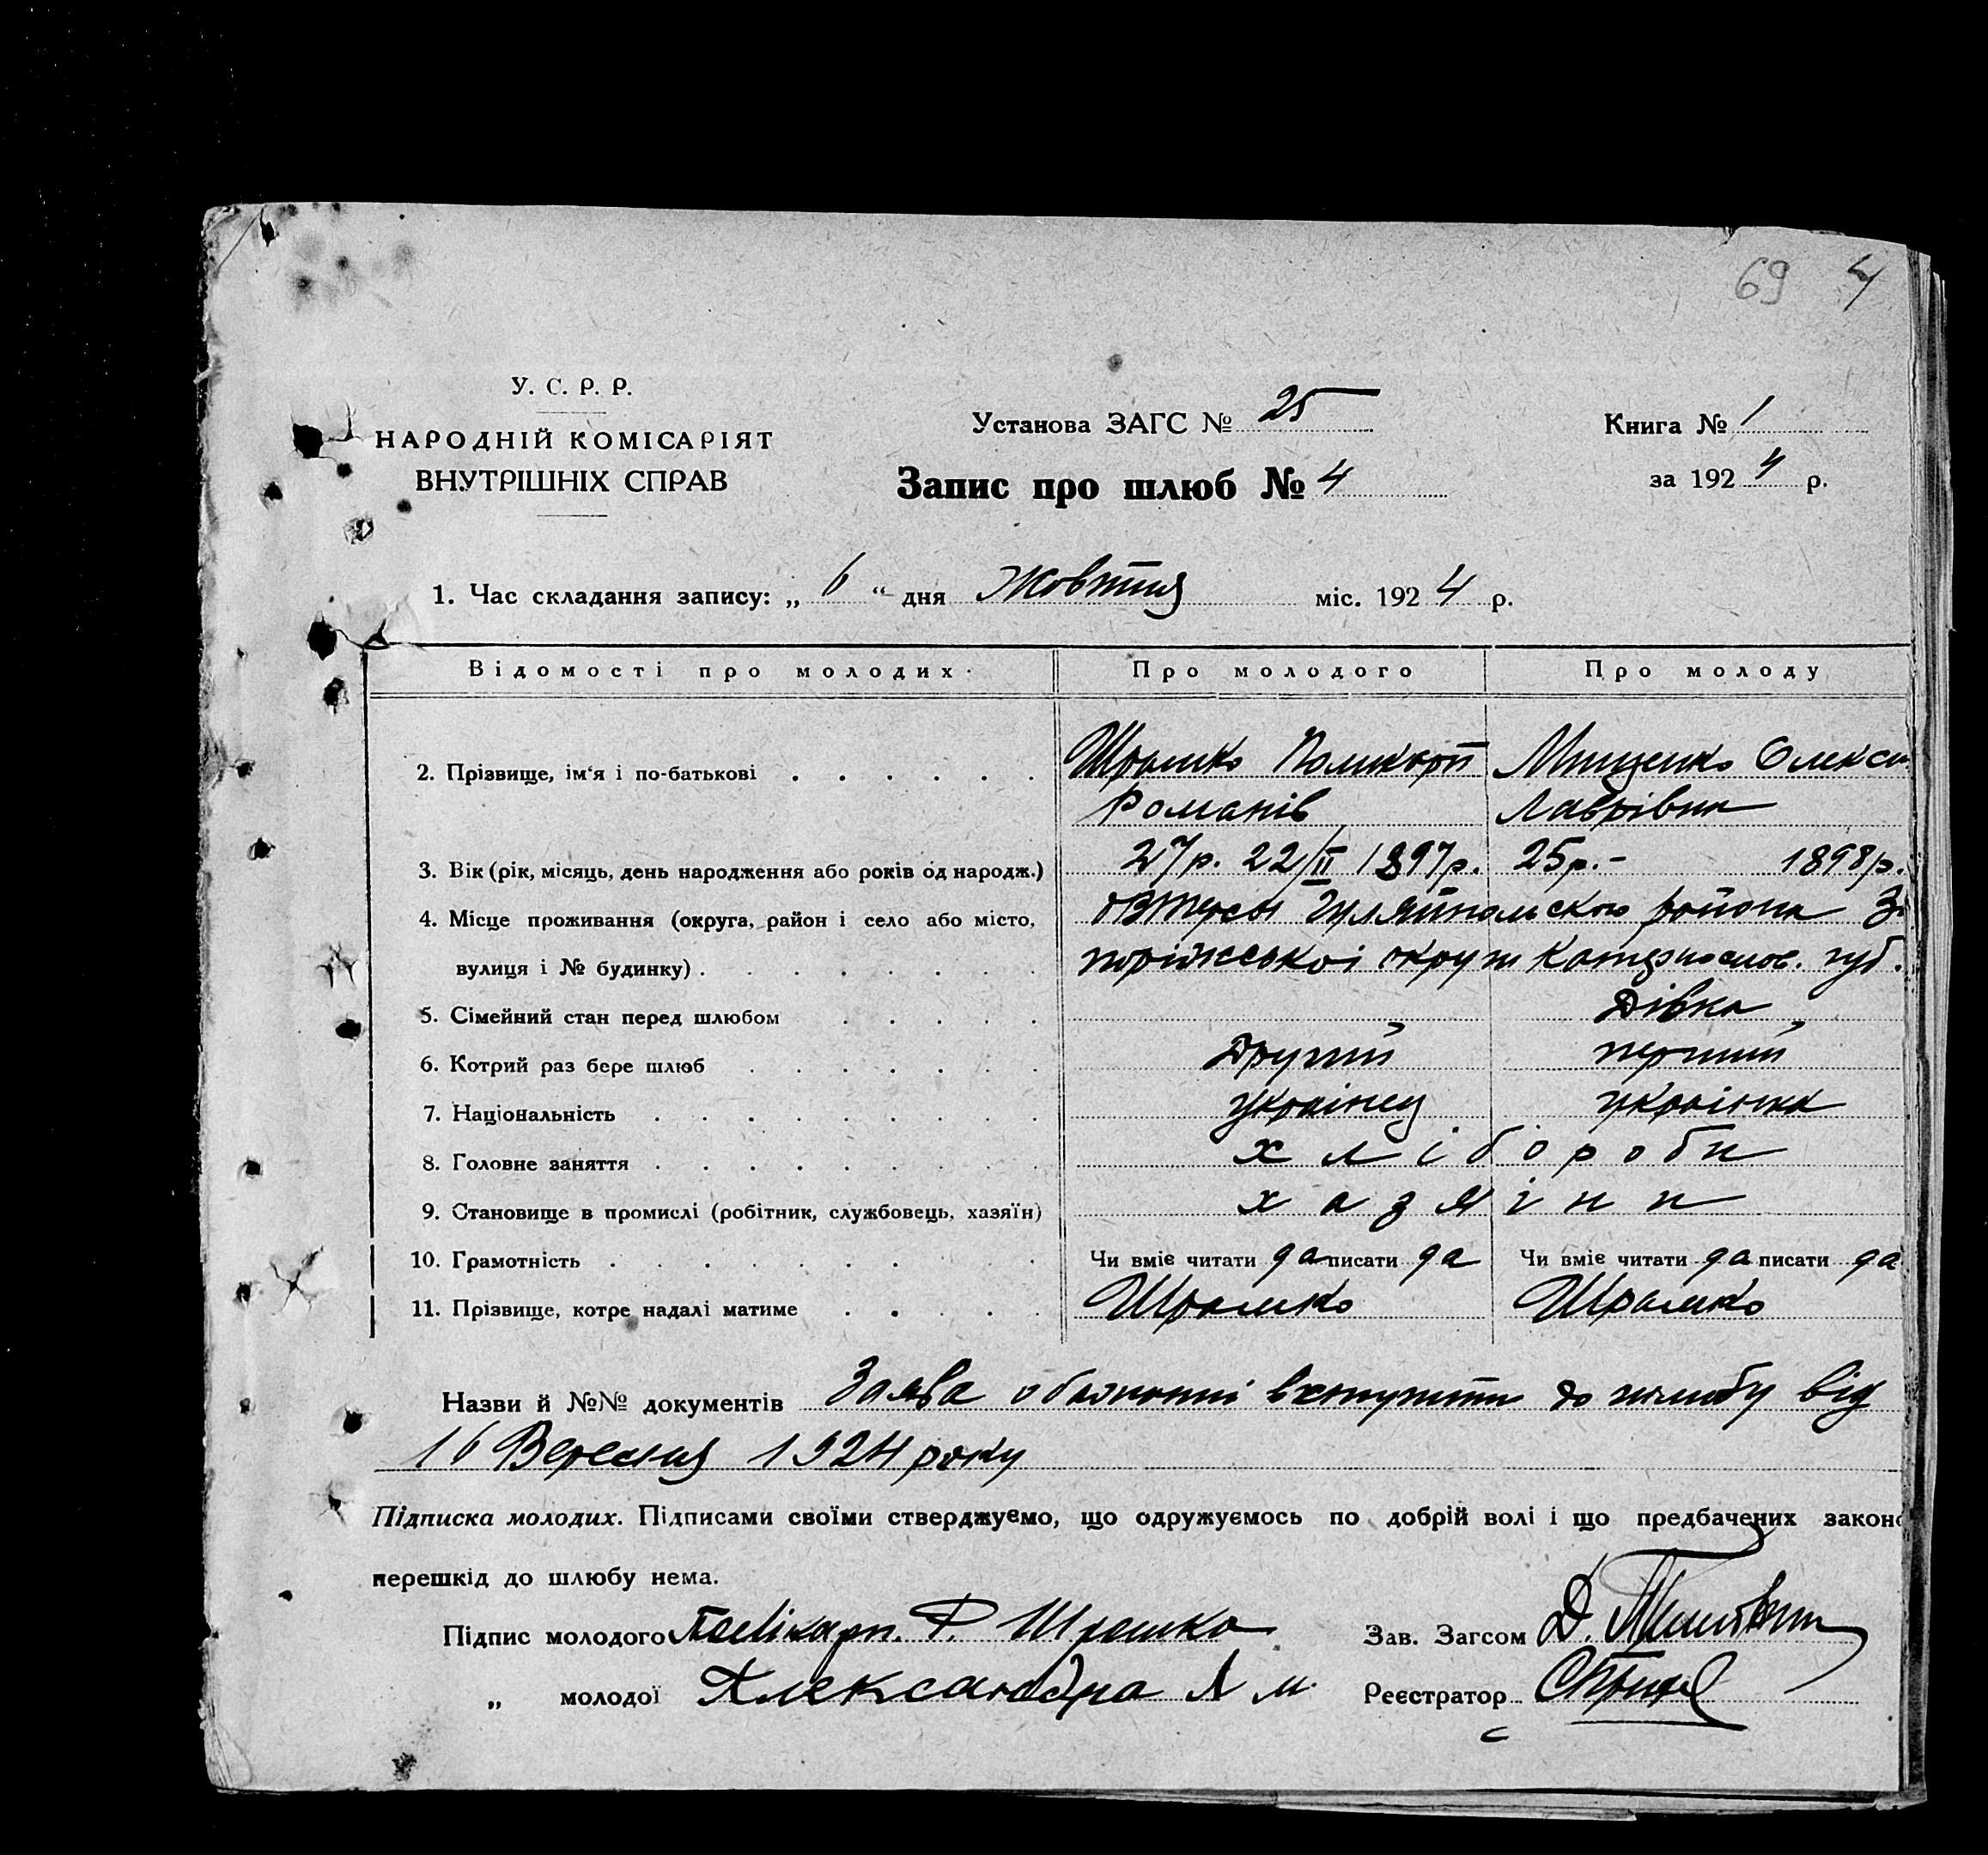 69 4
У. С. Р. Р.
НАРОДНІЙ КОМІСАРІЯТ
ВНУТРІШНІХ СПРАВ
Установа ЗАГС № 25
Запис про шлюб № 4
Книга № 1
за 1924 р.
1. Час складання запису: „ 6 “ дня Жовтня міс. 1924 р.
Відомості про молодих. Про молодого Про молоду
2. Прізвище, ім'я і по-батькові . . . . . . Шрамко Поликарп Мищенко Олекса
Романів Лаврівна
3. Вік (рік, місяць, день народження або років од народж.) 27р. 22/II 1897р. 25р.- 1898р.
4. Місце проживання (округа, район і село або місто, Гуляйпольского района За
вулиця і № будинку) . . . . . . . . поріжської округи Катеринослов. губ.
5. Сімейний стан перед шлюбом . . . . . Дівка
6. Котрий раз бере шлюб . . . . . . . Другий перший
7. Національність . . . . . . . . . українец українка
8. Головне заняття . . . . . . . . . хлібороби
9. Становище в промислі (робітник, службовець, хазяїн) хазяіни
10. Грамотність . . . . . . . . . Чи вміє читати да писати да Чи вміє читати да писати да
11. Прізвище, котре надалі матиме . . . . . Шрамко Шрамко
Назви й №№ документів Заява о бажанні вступити до шлюбу від
16 Вересня 1924 року
Підписка молодих. Підписами своїми стверджуємо, що одружуємось по добрій волі і що предбачених законо
перешкід до шлюбу нема.
Підпис молодого Полікарп. Р. Шрамко Зав. Загсом Д.
„ молодої Александра Л М. Реєстратор